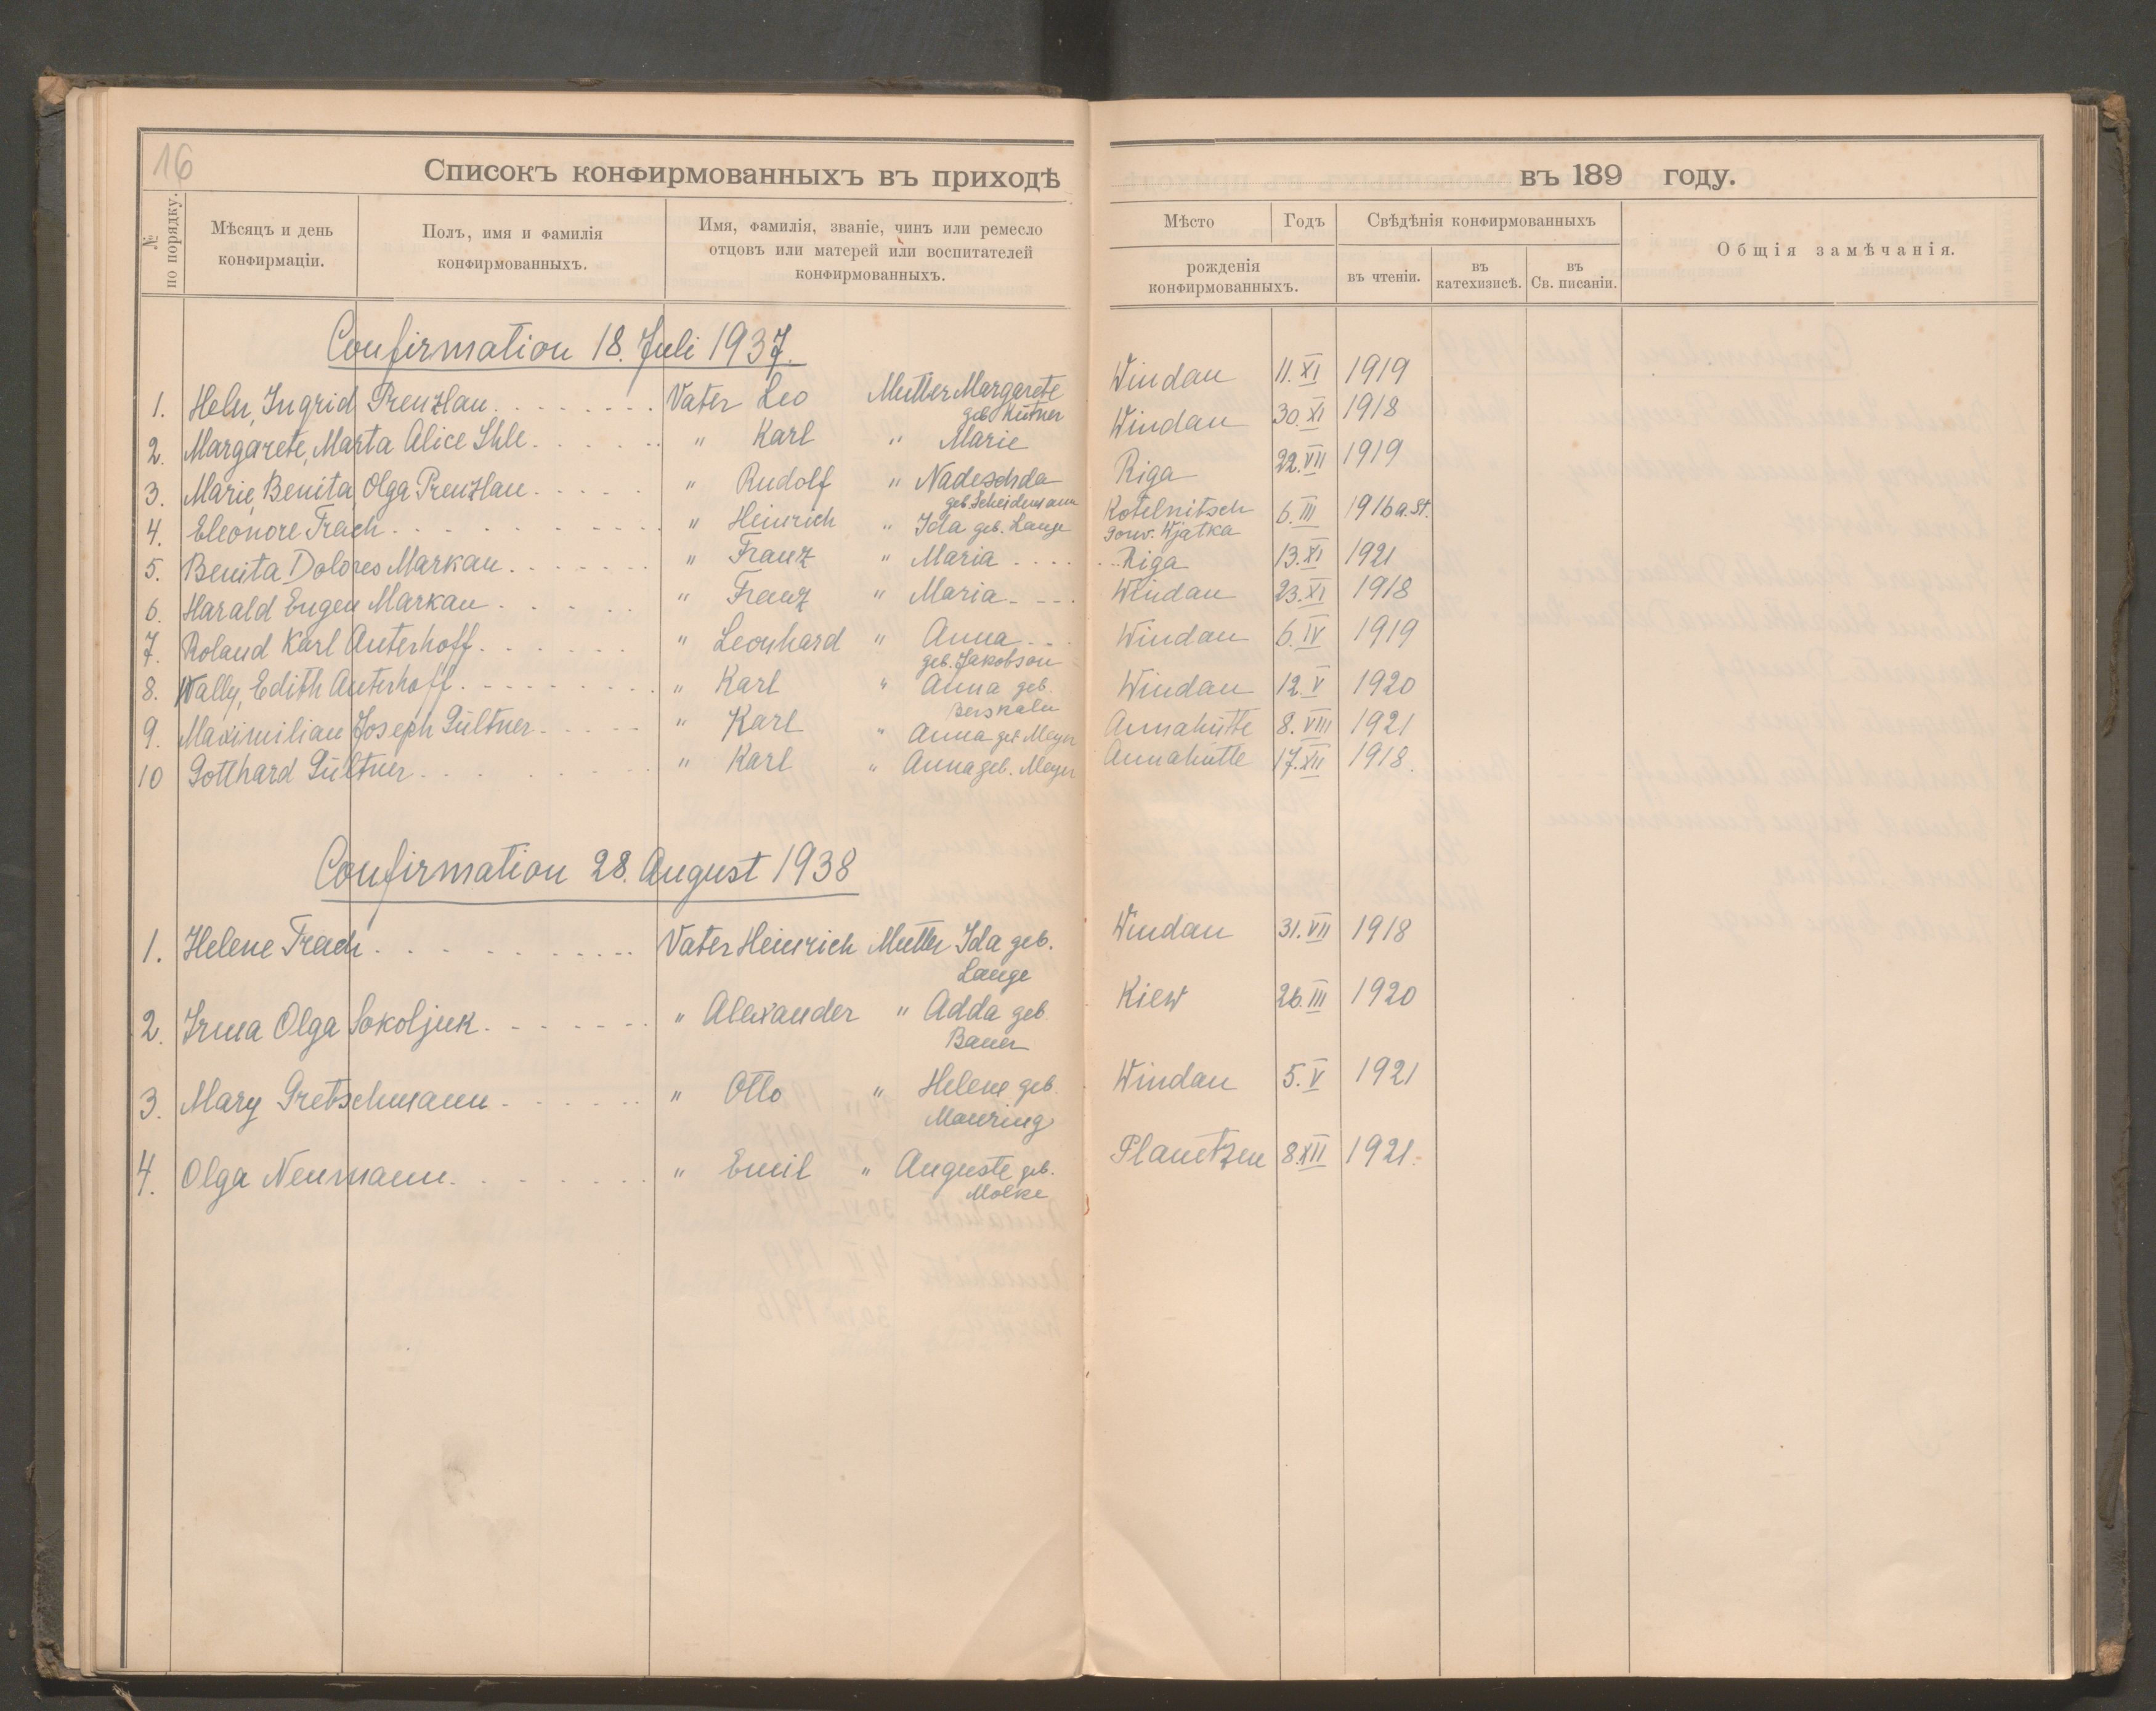 16
Списокъ конфирмованныхъ въ приходѣ въ 189 году.
№ по порядку.
Мѣсяцъ и день конфирмаціи.
Полъ, имя и фамилія конфирмованныхъ.
Имя, фамилія, званіе, чинъ или ремесло отцовъ или матерей или воспитателей конфирмованныхъ.
Мѣсто Годъ
рожденія конфирмованныхъ.
Свѣдѣнія конфирмованныхъ
въ чтеніи. въ катехизисѣ. въ Св. писаніи.
Общія замѣчанія.
Confirmation 18. Juli 1937.
1. Heln, Ingrid Prenzlau Vater Leo Mutter Margarete geb. Kütner Windau 11. XI 1919
2. Margarete, Marta Alice Ihle " Karl " Marie Windau 30. XI 1918
3. Marie, Benita, Olga Prenzlau " Rudolf " Nadeschda geb. Scheidemann Riga 22. VII 1919
4. Eleonore Trach " Heinrich " Ida geb. Lange Kotelnitsch Gouv. Wjatka 6. III 1916 a. St.
5. Benita Dolores Markau " Franz " Maria Riga 13. XI 1921
6. Harald Eugen Markau " Franz " Maria Windau 23. XI 1918
7. Roland Karl Anterhoff " Leonhard " Anna geb. Jakobson Windau 6. IV 1919
8. Wally, Edith Anterhoff " Karl " Anna geb. Berskaln Windau 12. V 1920
9. Maximilian Joseph Gültner " Karl " Anna geb. Meyer Annahütte 8. VIII 1921
10 Gotthard Gültner " Karl " Anna geb. Meyer Annahütte 17. XII 1918.
Confirmation 28. August 1938
1. Helene Trach Vater Heinrich Mutter Ida geb. Lange Windau 31. VII 1918
2. Irma Olga Sokoljuk " Alexander " Adda geb. Bauer Kiew 26. III 1920
3. Mary Gretschmann " Otto " Helene geb. Mauring Windau 5. V 1921
4. Olga Neumann " Emil " Auguste geb. Molke Planetzen 8. XII 1921.